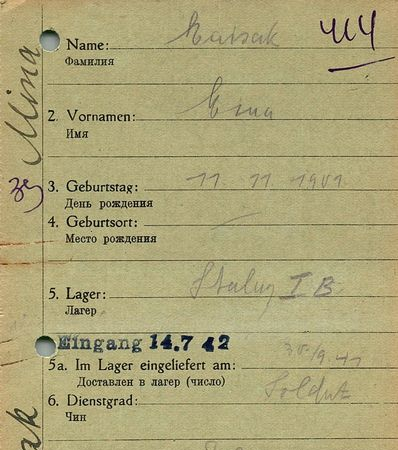 414
1. Name: Kaisak
Фамилия
Mina
2. Vornamen: Ema
Имя
3. Geburtstag: 11 11 1901
День рождения
4. Geburtsort: —
Место рождения
5. Lager: Stalag I B
Лагер
Eingang 14.7 42
5a. Im Lager eingeliefert am: 30./9.41
Доставлен в лагер (число)
6. Dienstgrad: Soldat
Чин
ak